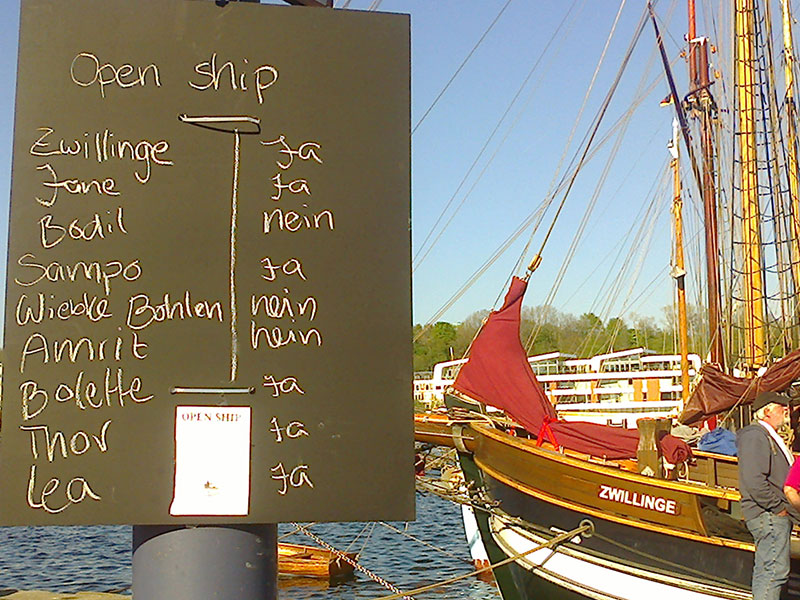 Open ship
Zwillinge Ja
Jane Ja
Bodil nein
Sampo Ja
Wiebke Bohlen nein
Amrit nein
Bolette Ja
Thor Ja
Lea Ja
OPEN SHIP
ZWILLINGE